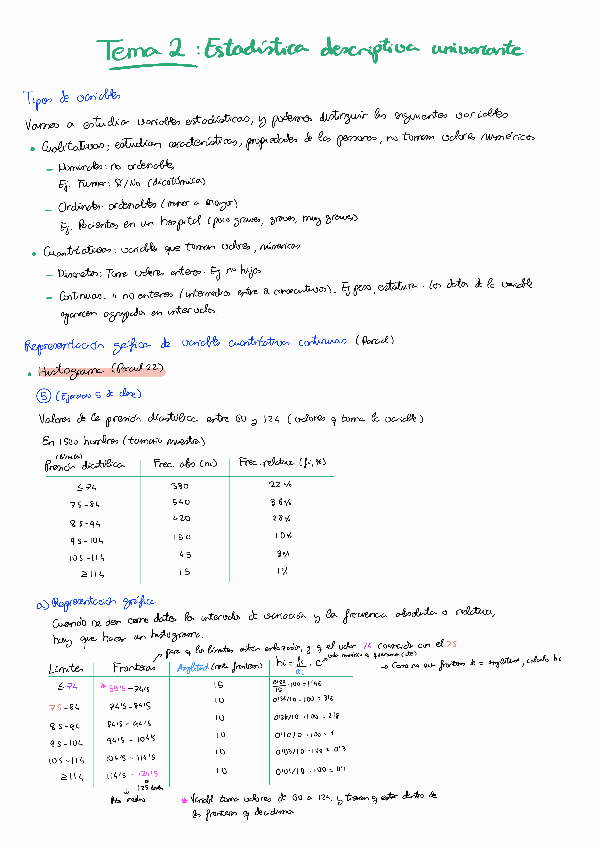 Tema 2 : Estadística descriptiva univariante
Tipos de variables
Vamos a estudiar variables estadísticas, y podemos distinguir las siguientes variables
• Cualitativas: estudian características, propiedades de las personas, no toman valores numéricos
– Nominales: no ordenables
Ej. Fumar: Sí/No (dicotómica)
– Ordinales: ordenables (menor a mayor)
Ej. Pacientes en un hospital (poco graves, graves, muy graves)
• Cuantitativas: variables que toman valores numéricos
– Discretas: Toma valores enteros. Ej nº hijos
– Continuas: " no enteros (intermedios entre 2 consecutivos). Ej peso, estatura. Los datos de la variable
aparecen agrupados en intervalos
Representación gráfica de variables cuantitativas continuas (Parcial)
• Histograma (Parcial 22)
⑤ (Ejercicio 5 de clase)
Valores de la presión diastólica entre 60 y 124 (valores q toma la variable)
En 1500 hombres (tamaño muestra)
Presión diastólica Frec. abs (ni) Frec. relativa (fi, %)
≤74 330 22%
75-84 540 36%
85-94 420 28%
95-104 150 10%
105-114 45 3%
≥114 15 1%
a) Representación gráfica
Cuando me den como datos los intervalos de variación y la frecuencia absoluta o relativa,
hay que hacer un histograma.
para q los límites estén enlazados, y q el valor 74 coincida con el 75
Límites Fronteras Amplitud (entre fronteras) hi = fi/ai · C
→ Como no son fronteras de = amplitud, calculo hi
≤74 * 59'5-74'5 15 0'22/15 ·100 = 1'46
75-84 74'5-84'5 10 0'36/10 ·100 = 3'6
85-94 84'5-94'5 10 0'28/10 ·100 = 2'8
95-104 94'5-104'5 10 0'10/10 ·100 = 1
105-114 104'5-114'5 10 0'03/10 ·100 = 0'3
≥114 114'5-124'5 10 0'01/10 ·100 = 0'1
* Variable toma valores de 60 a 124, y tienen q estar dentro de
las fronteras q decidamos